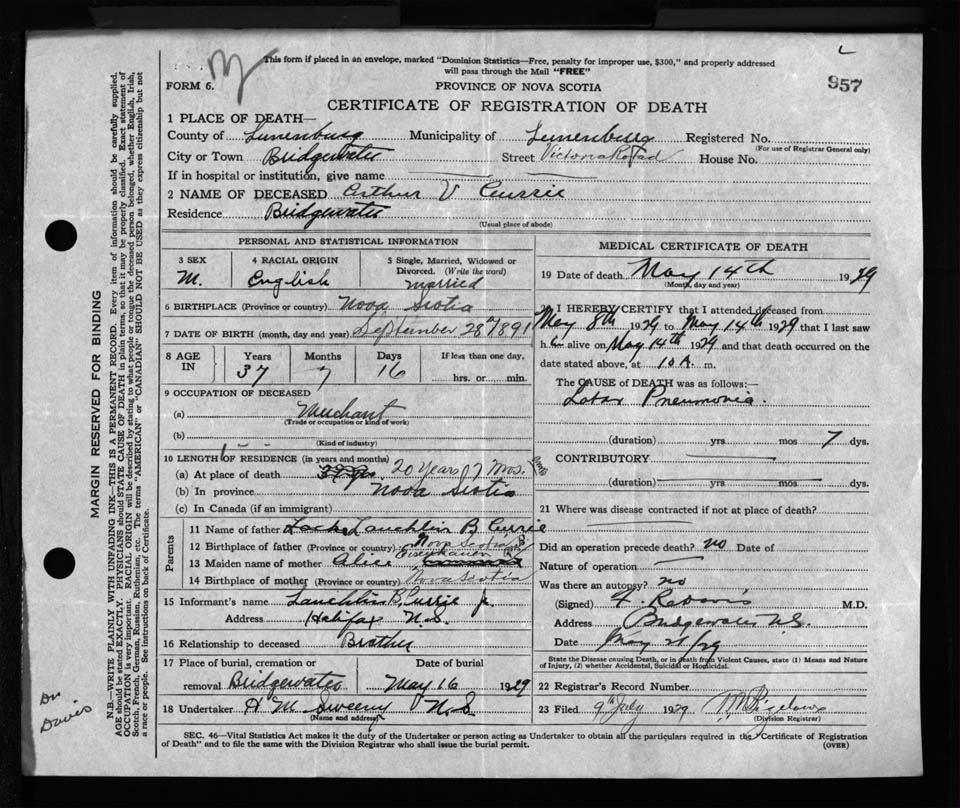 This form if placed in an envelope, marked "Dominion Statistics—Free, penalty for improper use, $300," and properly addressed
will pass through the Mail "FREE"
957
FORM 6.
PROVINCE OF NOVA SCOTIA
CERTIFICATE OF REGISTRATION OF DEATH
1 PLACE OF DEATH—
County of Lunenburg Municipality of Lunenburg Registered No.
(For use of Registrar General only)
City or Town Bridgewater Street Victoria Road House No.
If in hospital or institution, give name
2 NAME OF DECEASED Arthur V Currie
Residence Bridgewater
(Usual place of abode)
PERSONAL AND STATISTICAL INFORMATION
3 SEX 4 RACIAL ORIGIN 5 Single, Married, Widowed or Divorced. (Write the word)
M. English married
6 BIRTHPLACE (Province or country) Nova Scotia
7 DATE OF BIRTH (month, day and year) September 28 1891
8 AGE IN Years Months Days If less than one day,
37 7 16 hrs. or min.
9 OCCUPATION OF DECEASED
(a) Merchant
(Trade or occupation or kind of work)
(b)
(Kind of industry)
10 LENGTH OF RESIDENCE (in years and months)
(a) At place of death 20 Years 7 Mos.
(b) In province Nova Scotia
(c) In Canada (if an immigrant)
Parents
11 Name of father Lauchlin B Currie
12 Birthplace of father (Province or country) Nova Scotia
13 Maiden name of mother Alice
14 Birthplace of mother (Province or country) Nova Scotia
15 Informant's name Lauchlin B. Currie Jr.
Address Halifax N.S.
16 Relationship to deceased Brother
17 Place of burial, cremation or removal Bridgewater Date of burial May 16 1929
18 Undertaker H M Sweeny N.S
(Name and address)
MEDICAL CERTIFICATE OF DEATH
19 Date of death May 14th 1929
(Month, day and year)
20 I HEREBY CERTIFY that I attended deceased from
May 8th 1929 to May 14th 1929 that I last saw
h alive on May 14th 1929 and that death occurred on
date stated above, at 10 A. m.
The CAUSE of DEATH was as follows:—
Lobar Pneumonia.
(duration) yrs mos 7 dys.
CONTRIBUTORY
(duration) yrs mos dys.
21 Where was disease contracted if not at place of death?
Did an operation precede death? no Date of
Nature of operation
Was there an autopsy? no
(Signed) Davis M.D.
Address Bridgewater N.S.
Date May 21/29
State the Disease causing Death, or in death from Violent Causes, state (1) Means and Nature
of Injury, (2) whether Accidental, Suicidal or Homicidal.
22 Registrar's Record Number
23 Filed 9th July 1929
(Division Registrar)
SEC. 46—Vital Statistics Act makes it the duty of the Undertaker or person acting as Undertaker to obtain all the particulars required in the "Certificate of Registration
of Death" and to file the same with the Division Registrar who shall issue the burial permit.
(OVER)
MARGIN RESERVED FOR BINDING
N.B.—WRITE PLAINLY WITH UNFADING INK—THIS IS A PERMANENT RECORD. Every item of information should be carefully supplied.
AGE should be stated EXACTLY. PHYSICIANS should STATE CAUSE OF DEATH in plain terms, so that it may be properly classified. Exact statement of
OCCUPATION is very important. RACIAL ORIGIN will be described by stating to what people or tongue the deceased person belonged, whether English, Irish,
Scotch, French, German, Russian, Ruthenian, etc. The terms "AMERICAN" or "CANADIAN" SHOULD NOT BE USED as they express citizenship but not
a race or people. See instructions on back of Certificate.
Dr
Davis